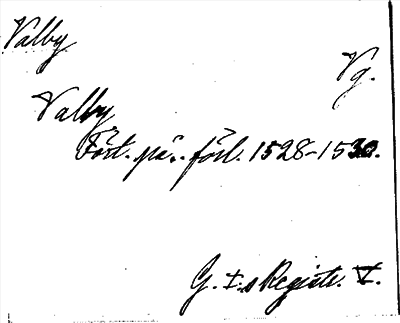 Valby
Vg.
Valby
Fört. på. förl. 1528-1530.
G. I.s Registr. V.